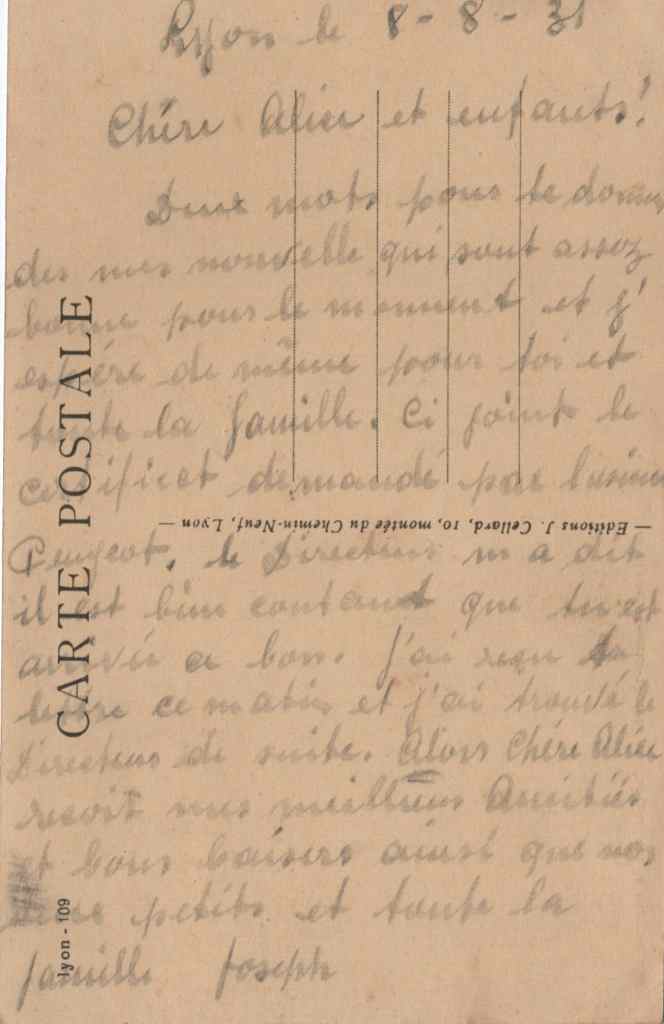 Lyon le 8-8-31
Chére Alice et enfants!
Deux mots pour te donner
des mes nouvelle qui sont assez
bonne pour le momment et j'
espére de même pour toi et
toute la famille. Ci joint le
certificat demandé par l'usine
Peugeot. le Directeur m a dit
il est bien contant que tu est
arrivée a bon. J'ai reçu ta
lettre ce matin et j'ai trouvé le
Directeur de suite. Alors Chére Alice
reçoit mes meilleurs Amitiés
et bons baisers ainsi que nos
deux petits et toute la
famille Joseph
CARTE POSTALE
— Editions J. Cellard, 10, montée du Chemin-Neuf, Lyon —
lyon - 109